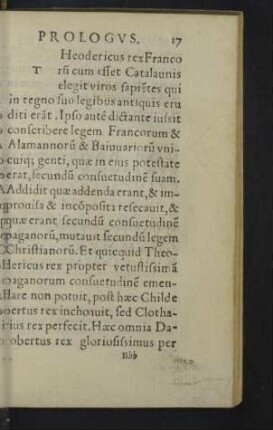 PROLOGVS. 17
Heodericus rex Franco
T rũ cum eſſet Catalaunis
elegit viros ſapiẽtes qui
in regno ſuo legibus antiquis eru
diti erãt. Ipſo autẽ dictante iuſsit
conſcribere legem Francorum &
Alamannorũ & Baiuuariorũ vni-
cuiq; genti, quæ in eius poteſtate
erat, ſecundũ conſuetudinẽ ſuam.
Addidit quæ addenda erant, & im-
prouiſa & incõpoſita reſecauit, &
quæ erant ſecundũ conſuetudinẽ
paganorũ, mutauit ſecundũ legem
Chriſtianorũ. Et quicquid Theo-
Hericus rex propter vetuſtiſsimã
paganorum conſuetudinẽ emen-
Hare non potuit, poſt hæc Childe
bertus rex inchoauit, ſed Clotha-
rius rex perfecit. Hæc omnia Da-
obertus rex glorioſiſsimus per
Bbb